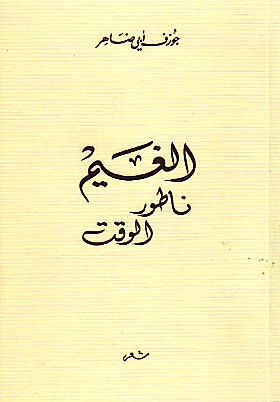 جوزف أبي ضاهر
الغيم
ناطور
الوقت
شعر